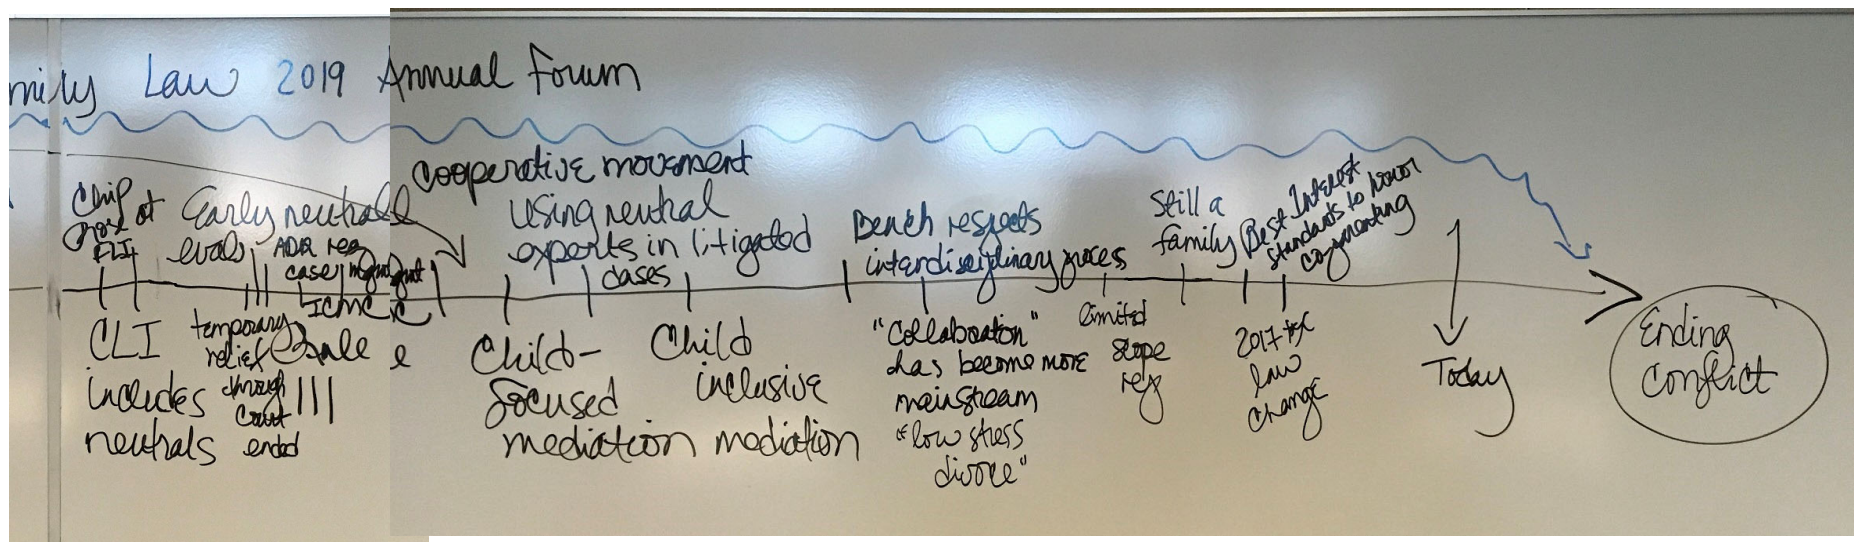 mily Law 2019 Annual Forum
cooperative movement
Chip
Rose at
CLI
Early neutral
evals
ADR req
case mgmt
ICMC
using neutral
experts in litigated
cases
Bench respects
interdisciplinary process
Still a
family
Best Interest
standards to honor
coparenting
CLI
includes
neutrals
temporary
relief
through
court
ended
Child-
focused
mediation
Child
inclusive
mediation
"Collaboration"
has become more
mainstream
"low stress
divorce"
limited
scope
reg
2017 tax
law
change
Today
Ending
conflict